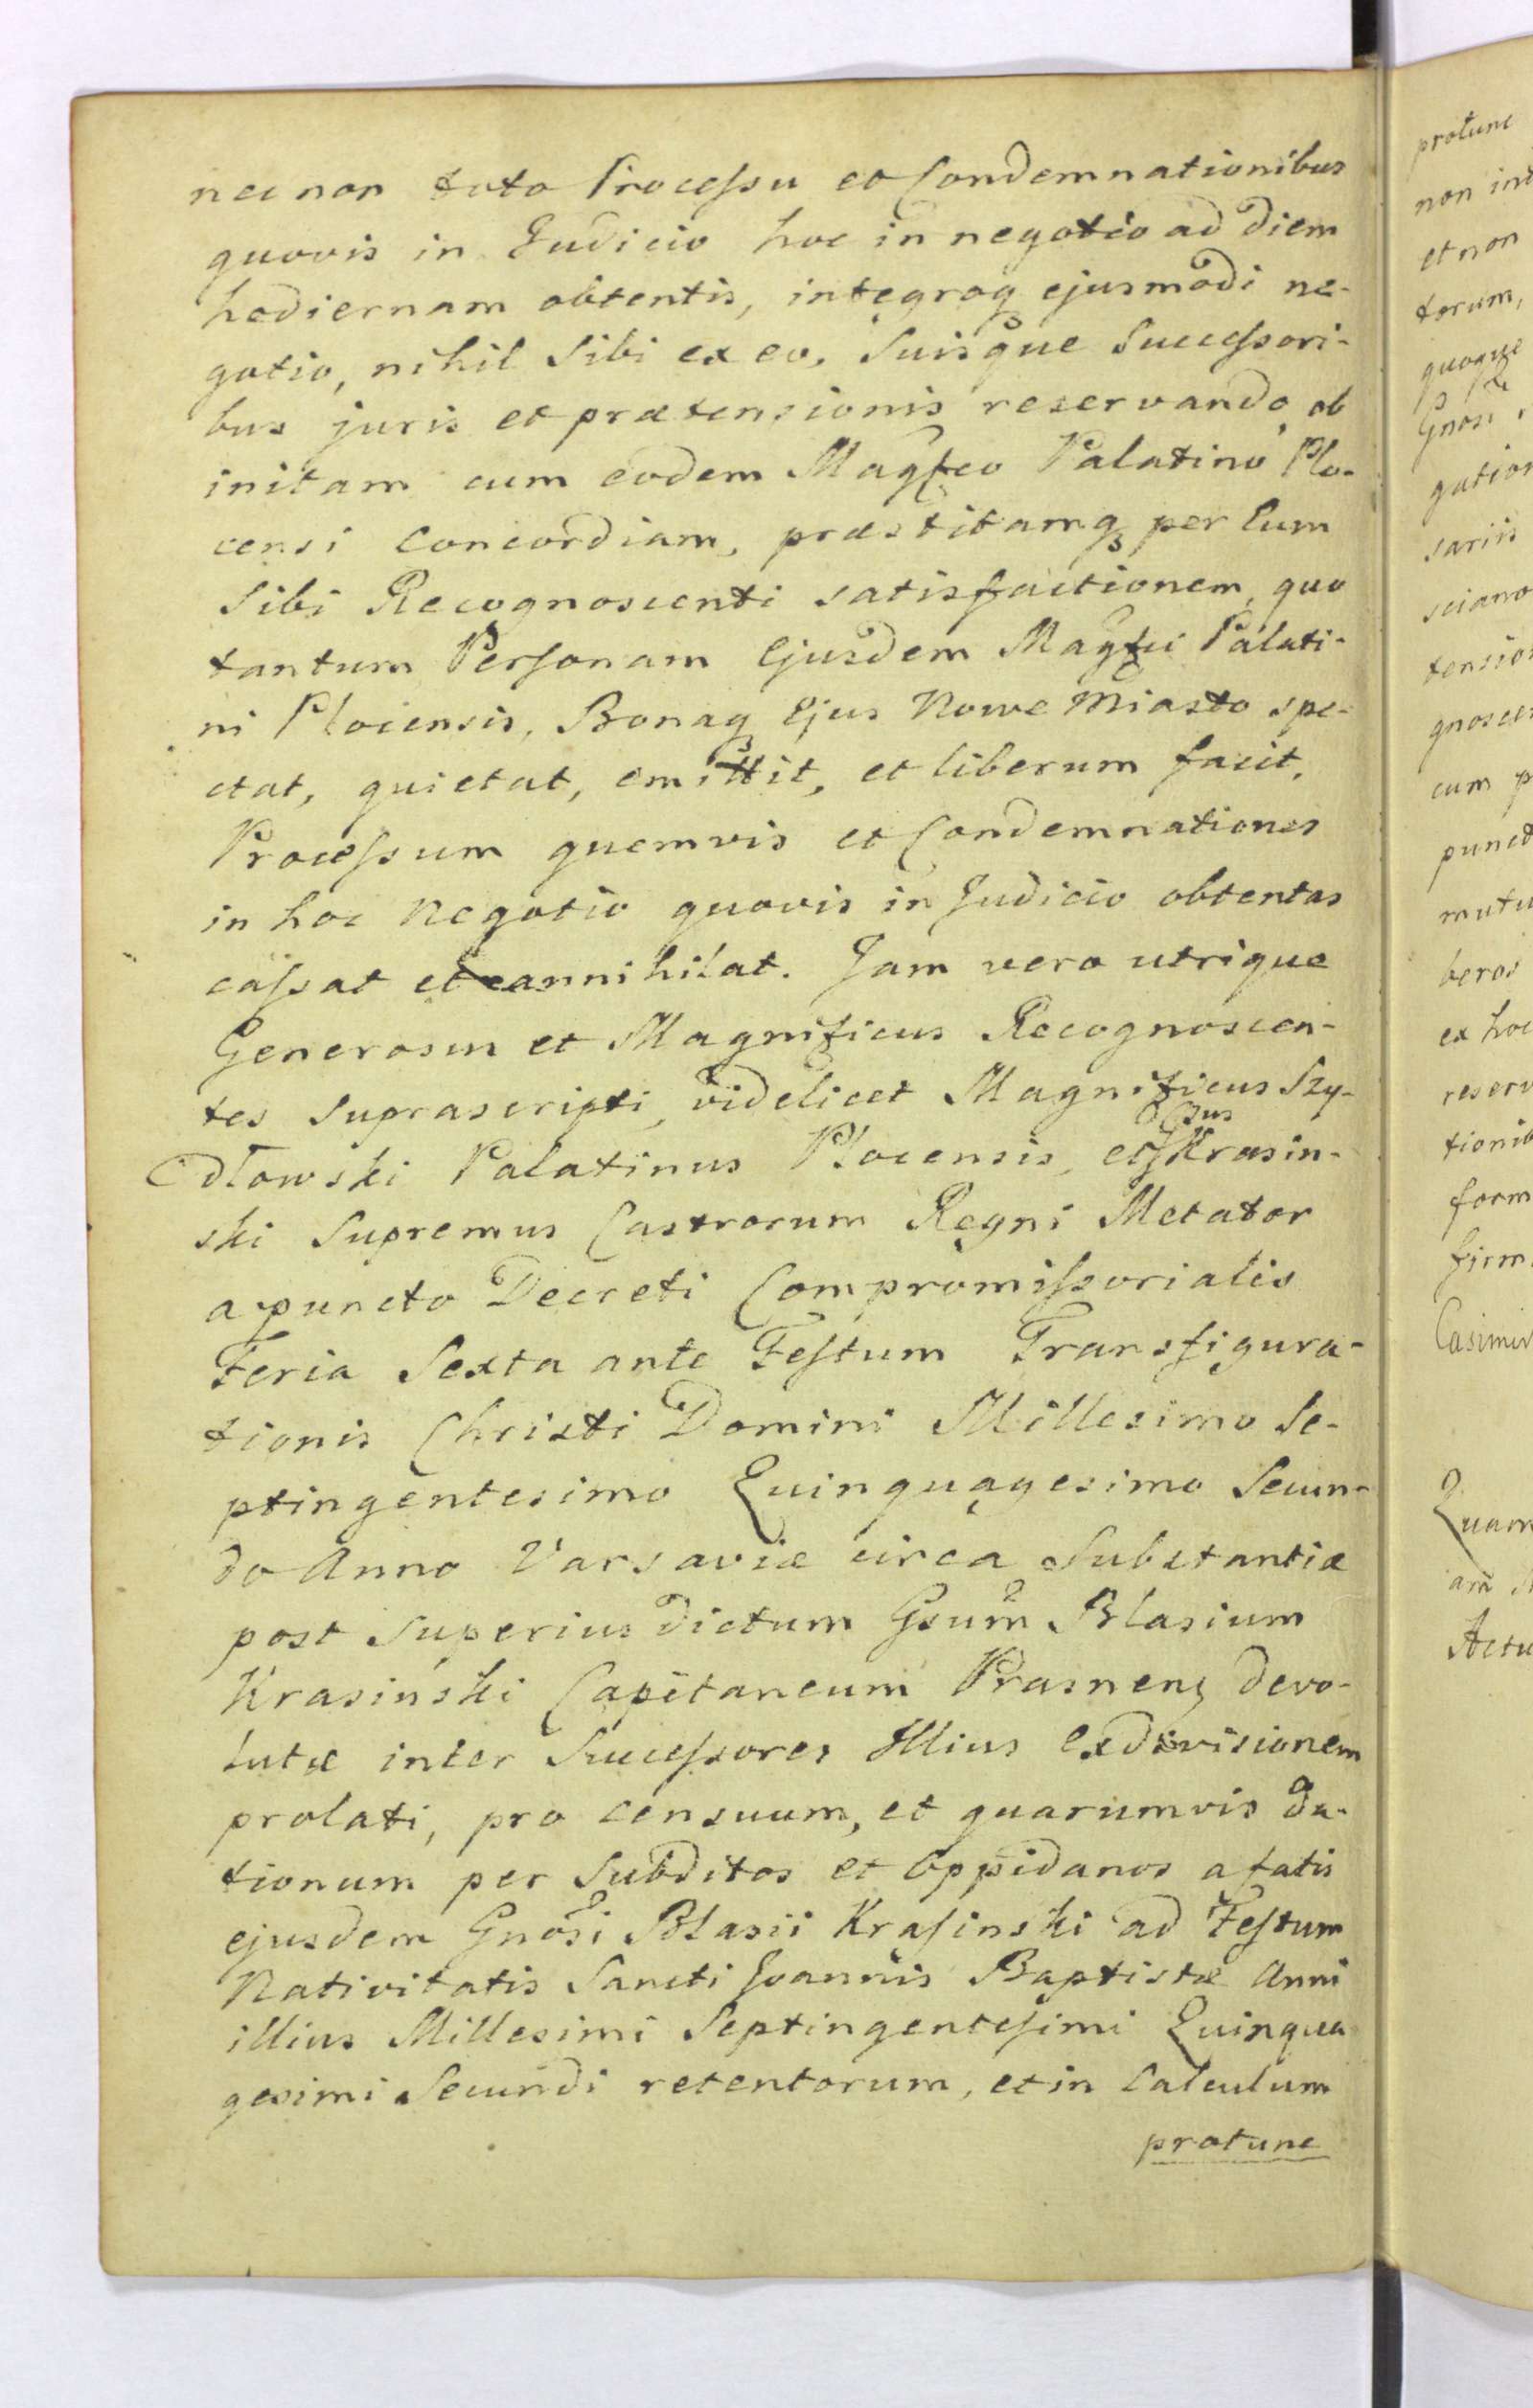 nec non toto Processu et Condemnationibus
quovis in Judicio hoc in negotio ad diem
hodiernam obtentis, integroq ejusmodi ne-
gotio, nihil Sibi ex eo, Suisque Successori-
bus juris et prætensionis reservando, ob
initam cum eodem Magfco Palatino Plo-
censi Concordiam, præstitamq per Eum
Sibi Recognoscenti satisfactionem, quo
tantum Personam Ejusdem Magfci Palati-
ni Plocensis, Bonaq Ejus Nowe Miasto spe-
ctat, quietat, emittit, et liberum facit,
Processum quemvis et Condemnationes
in hoc Negotio quovis in Judicio obtentas
cassat et annihilat. Jam vero utrique
Generosus et Magnificus Recognoscen-
tes suprascripti, videlicet Magnificus Szy-
dłowski Palatinus Plocensis, et Gsus Krasin-
ski Supremus Castrorum Regni Metator
a puncto Decreti Compromissorialis
Feria Sexta ante Festum Transfigura-
tionis Christi Domini Millesimo Se-
ptingentesimo Quinquagesimo Secun-
do Anno Varsaviæ circa Substantiæ
post Superius dictum Gsum Blasium
Krasiński Capitaneum Prasnens devo-
lutæ inter Successores Illius Exdivisionem
prolati, pro censuum, et quarumvis da-
tionum per Subditos et Oppidanos a fatis
ejusdem Gnosi Blasii Krasinski ad Festum
Nativitatis Sancti Joannis Baptistæ Anni
illius Millesimi Septingentesimi Quinqua
gesimi Secundi retentorum, et in Calculum
protunc
protunc
non
et non
torum,
quoque
Gnosi
sariis
cum
ex hoc
Casimir